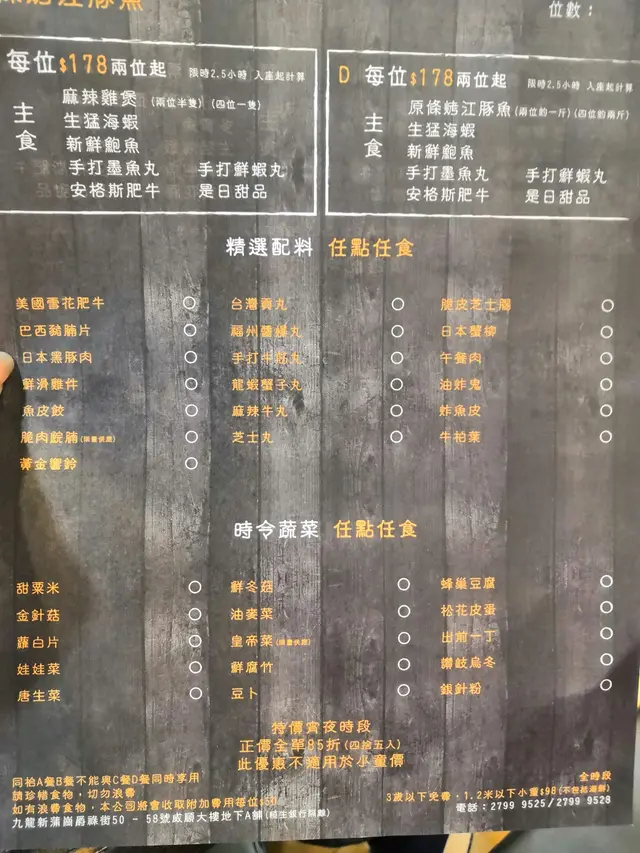 江豚魚
位數：
每位$178兩位起 限時2.5小時 入座起計算
主食
麻辣雞煲(兩位半隻)(四位一隻)
生猛海蝦
新鮮鮑魚
手打墨魚丸 手打鮮蝦丸
安格斯肥牛 是日甜品
D 每位$178兩位起 限時2.5小時 入座起計算
主食
原條㷫江豚魚(兩位約一斤)(四位約兩斤)
生猛海蝦
新鮮鮑魚
手打墨魚丸 手打鮮蝦丸
安格斯肥牛 是日甜品
精選配料 任點任食
美國雪花肥牛 台灣貢丸 脆皮芝士腸
巴西豬腩片 福州醬爆丸 日本蟹柳
日本黑豚肉 手打牛筋丸 午餐肉
鮮滑雞件 龍蝦蟹子丸 油炸鬼
魚皮餃 麻辣牛丸 炸魚皮
脆肉鯇腩(限量供應) 芝士丸 牛柏葉
黃金響鈴
時令蔬菜 任點任食
甜粟米 鮮冬菇 蜂巢豆腐
金針菇 油麥菜 松花皮蛋
蘿白片 皇帝菜(限量供應) 出前一丁
娃娃菜 鮮腐竹 讚岐烏冬
唐生菜 豆卜 銀針粉
特價宵夜時段
正價全單85折(四捨五入)
此優惠不適用於小童價
同枱A餐B餐不能與C餐D餐同時享用
請珍惜食物，切勿浪費
如有浪費食物，本公司將會收取附加費用每位$50
九龍新蒲崗爵祿街50 - 58號威顯大樓地下A舖(恒生銀行隔離)
全時段
3歲以下免費，1.2米以下小童$98(不包括海鮮)
電話：2799 9525/2799 9528